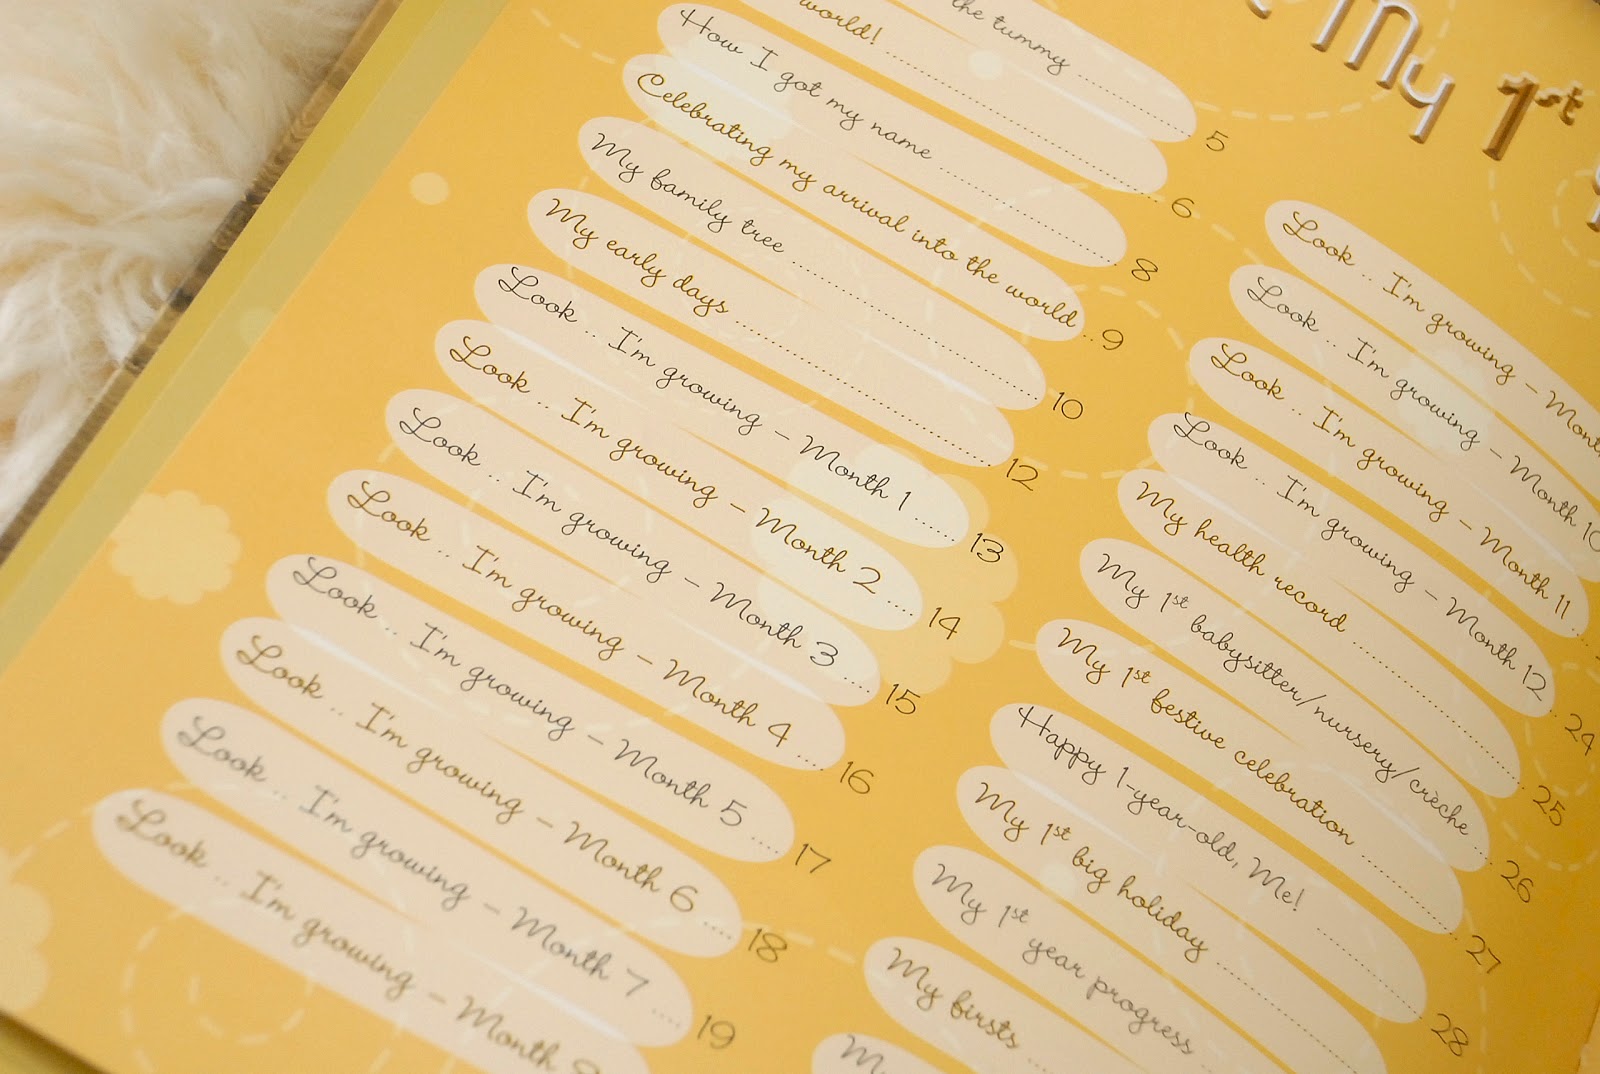 My 1st
the tummy .......... 5
world! .......... 6
How I got my name .......... 8
Celebrating my arrival into the world .. 9
My family tree .......... 10
My early days .......... 12
Look .. I'm growing – Month 1 ...... 13
Look .. I'm growing – Month 2 ..... 14
Look .. I'm growing – Month 3 ..... 15
Look .. I'm growing – Month 4 ..... 16
Look .. I'm growing – Month 5 ..... 17
Look .. I'm growing – Month 6 ..... 18
Look .. I'm growing – Month 7 ..... 19
Look .. I'm growing – Month
Look .. I'm growing – Month
Look .. I'm growing – Month 10
Look .. I'm growing – Month 11 ..
Look .. I'm growing – Month 12 .. 24
My health record .......... 25
My 1st babysitter/nursery/crèche .. 26
My 1st festive celebration .......... 27
Happy 1-year-old, Me! .......... 28
My 1st big holiday ..........
My 1st year progress
My firsts ..